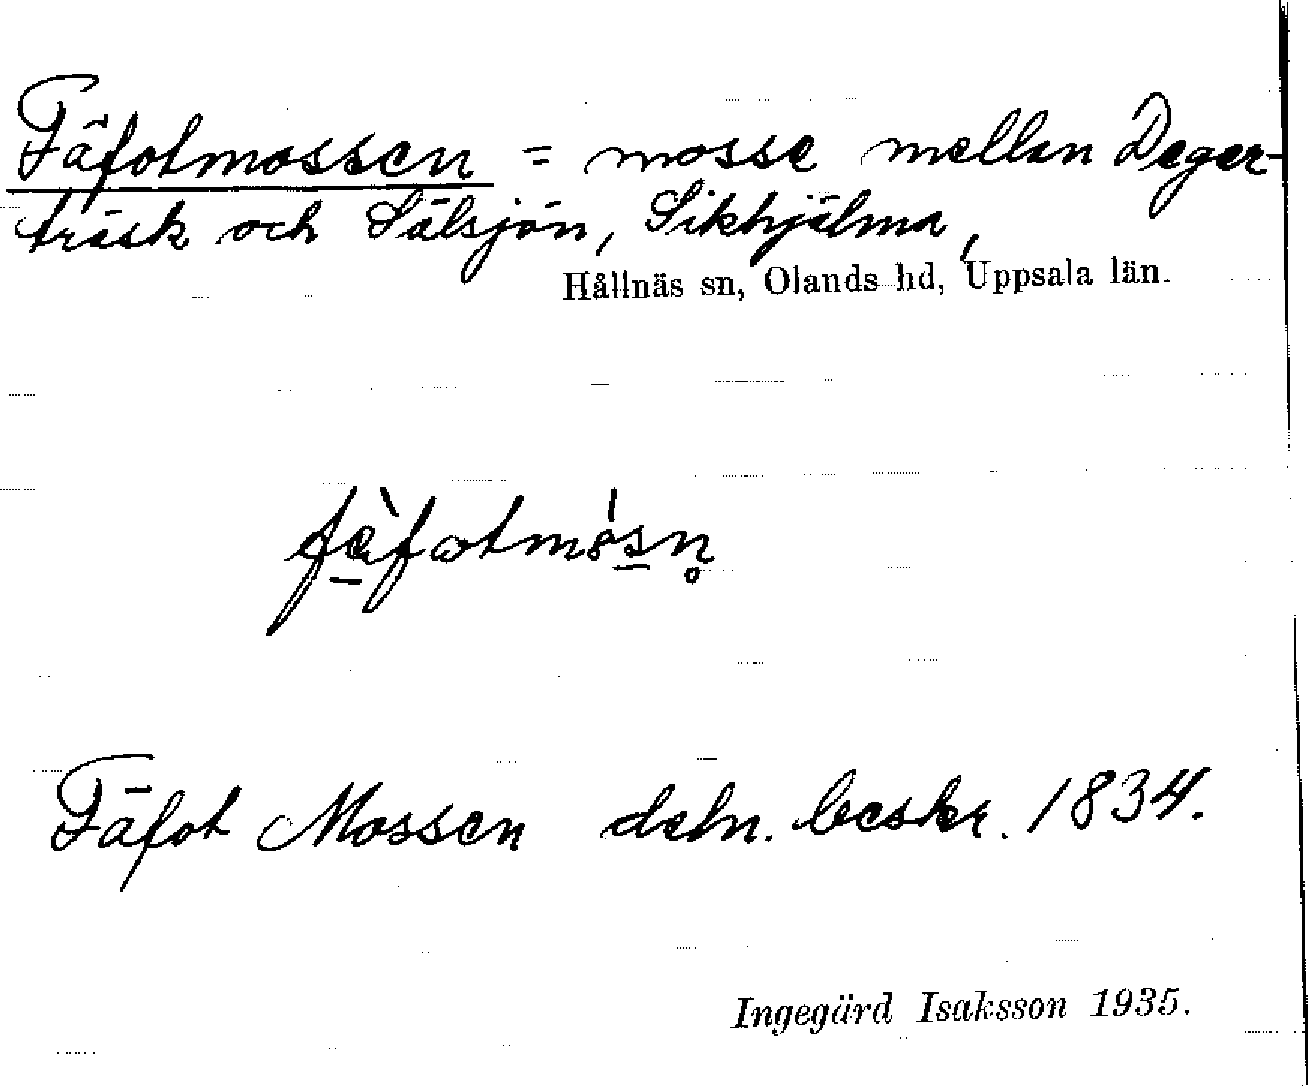 Fäfotmossen = mosse mellan Deger-
träsk och Sälsjön, Sikhjälma,
Hållnäs sn, Olands hd, Uppsala län.
Fäfot Mossen deln. beskr. 1834.
Ingegärd Isaksson 1935.